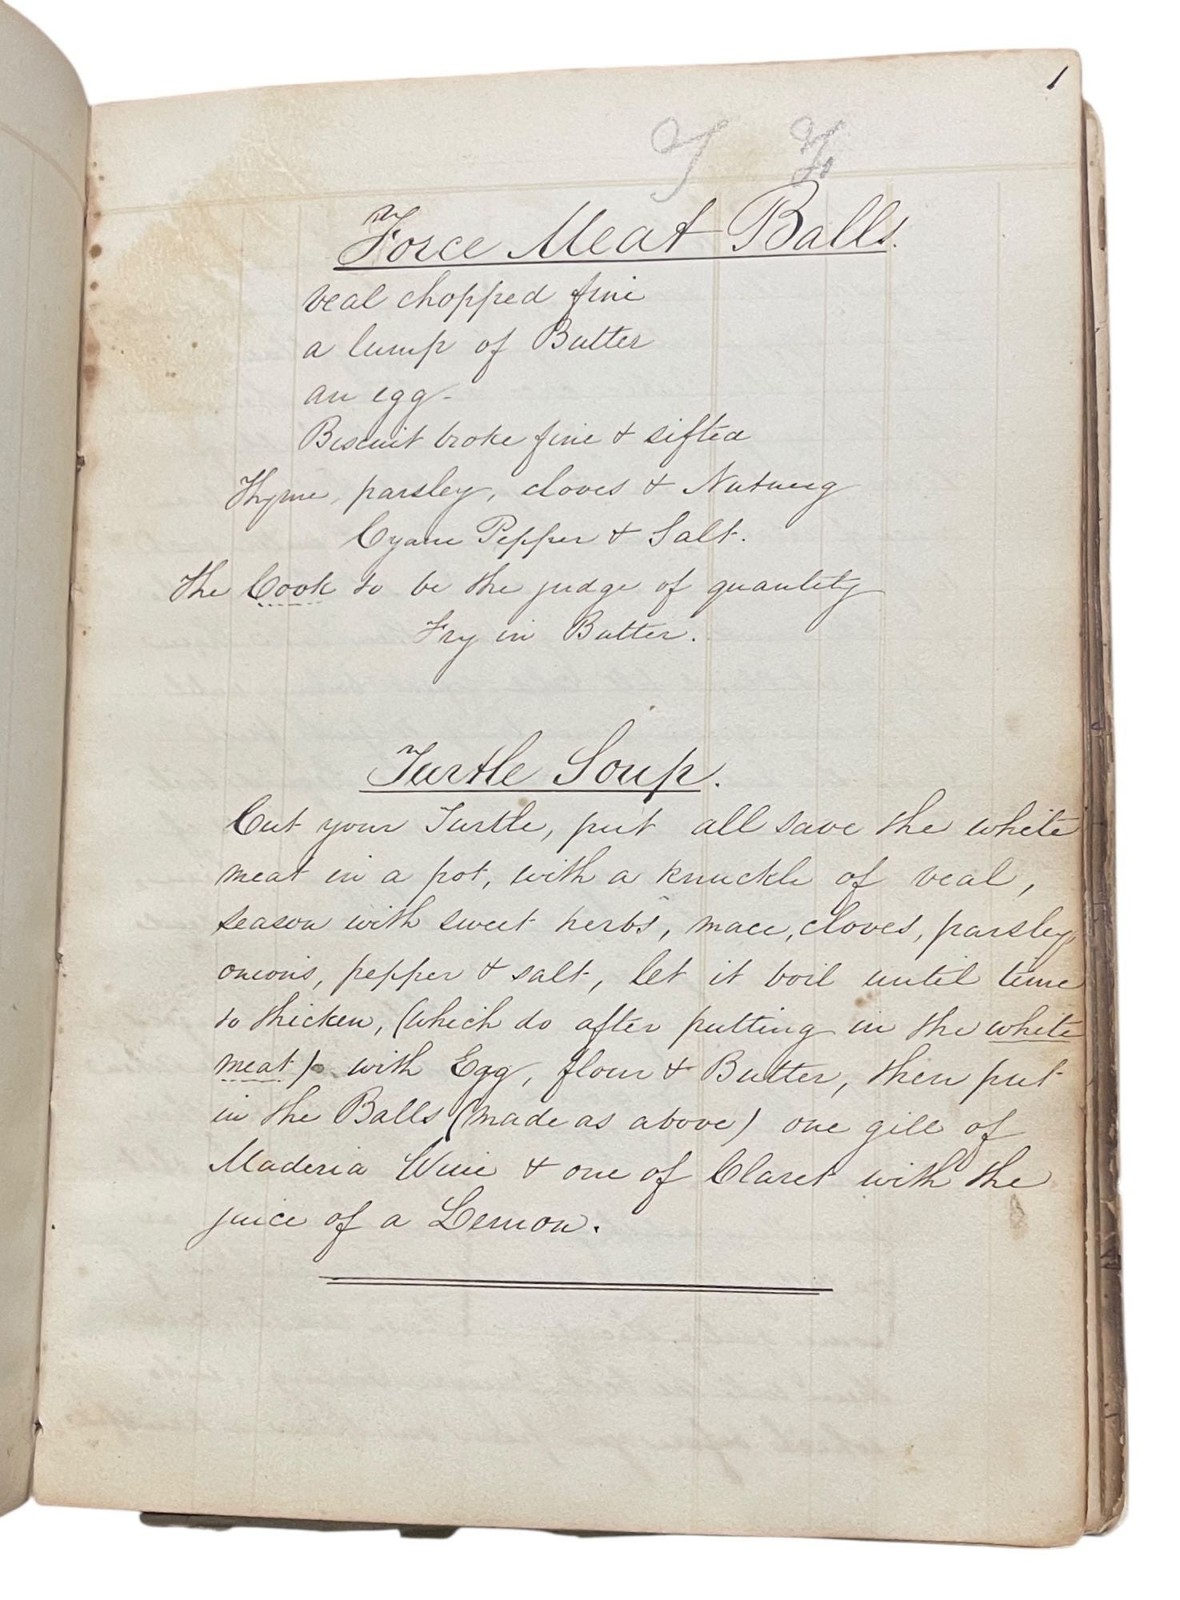 1
Force Meat Balls.
Veal chopped fine
a lump of Butter
an egg -
Biscuit broke fine & sifted
Thyme, parsley, cloves & Nutmeg
Cyane Pepper & Salt.
the Cook to be the judge of quantity
Fry in Butter.
Turtle Soup.
Cut your Turtle, put all save the white
meat in a pot, with a knuckle of veal,
season with sweet herbs, mace, cloves, parsley
onions, pepper & salt, let it boil until time
to thicken, (which do after putting in the white
meat) with Egg, flour & Butter, then put
in the Balls (made as above) one gill of
Maderia Wine & one of Claret with the
juice of a Lemon.